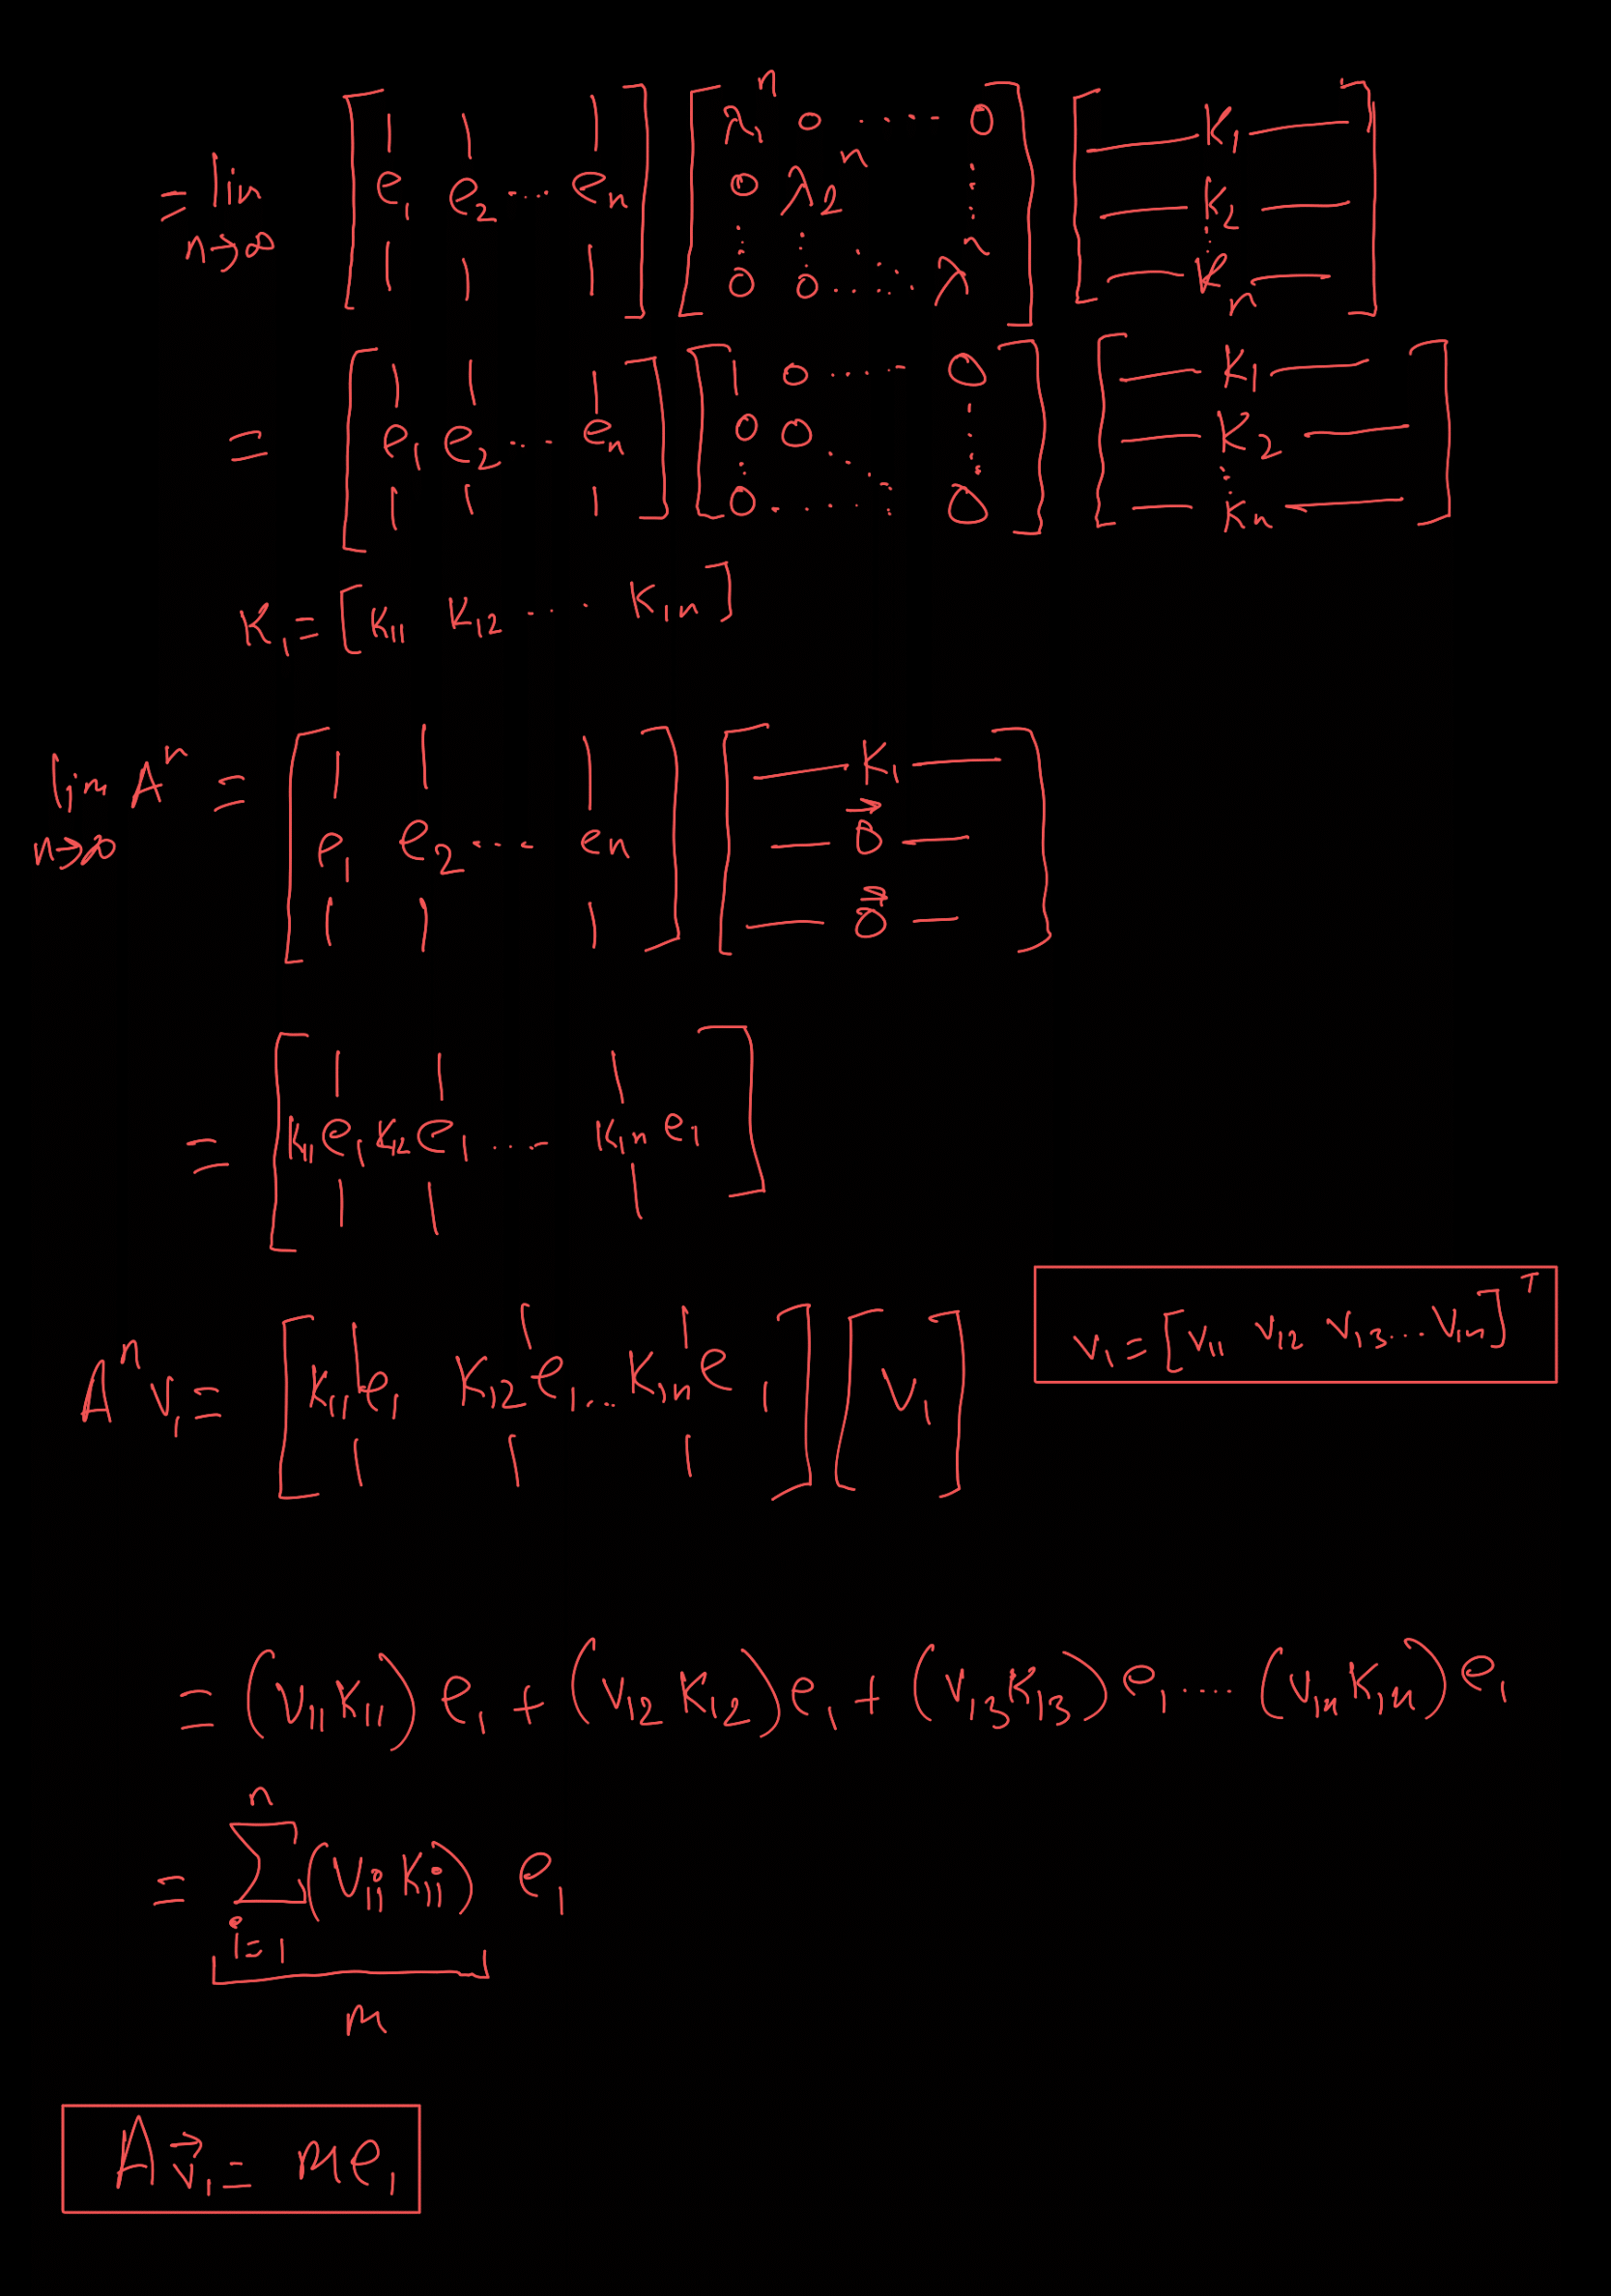 = lim n→∞ [e₁ e₂ ... eₙ] [λ₁ⁿ 0 ..... 0; 0 λ₂ⁿ ⋮; ⋮ ⋮ ⋱ ⋮; 0 0 ..... λⁿ] [— K₁ —; — K₂ —; ⋮; — Kₙ —]
= [e₁ e₂ ... eₙ] [1 0 ..... 0; 0 0 ⋱ ⋮; 0 ..... 0] [— K₁ —; — K₂ —; ⋮; — Kₙ —]
K₁ = [K₁₁ K₁₂ .... K₁ₙ]
lim n→∞ Aⁿ = [e₁ e₂ .... eₙ] [— K₁ —; — 0⃗ —; — 0⃗ —]
= [K₁₁e₁ K₁₂e₁ .... K₁ₙe₁]
v₁ = [v₁₁ v₁₂ v₁₃ ... v₁ₙ]ᵀ
Aⁿv₁ = [K₁₁e₁ K₁₂e₁ ... K₁ₙe₁] [v₁]
= (v₁₁K₁₁)e₁ + (v₁₂K₁₂)e₁ + (v₁₃K₁₃)e₁ .... (v₁ₙK₁ₙ)e₁
= Σ i=1 n (v₁ᵢK₁ᵢ) e₁
m
Av⃗₁ = me₁